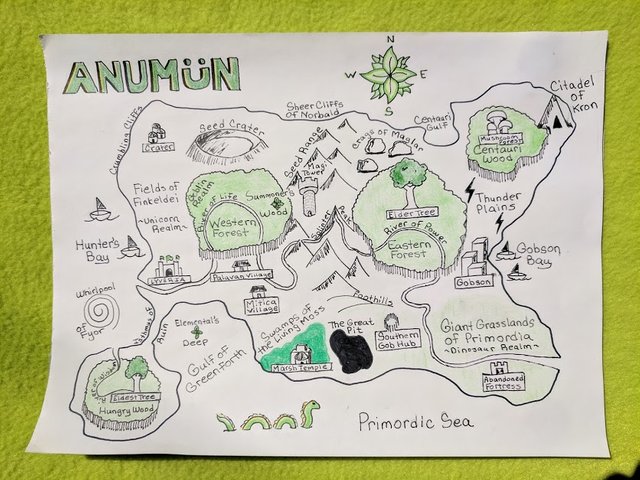 ANUMÜN
N
W E
S
Citadel
of
Kron
Sheer Cliffs
of Norbald
Centauri
Gulf
Crumbling Cliffs
Crater
Seed Crater
Seed Range
Magi
Tower
Crags of Maglar
Mushroom
Forest
Centauri
Wood
Fields of
Finkeldei
~Unicorn
Realm~
Goblin
Realm
River of Life
Summoner's
Wood
Western
Forest
Elder Tree
River of Power
Eastern
Forest
Thunder
Plains
Hunter's
Bay
Splinter
Peak
Gobson
Bay
Gobson
LYVERIA
Palavan Village
Mitica
Village
Foothills
Whirlpool
of
Fyor
Isthmus of
Ruin
Elemental's
Deep
Gulf of
Greenforth
Swamps of
the Living Moss
Marsh Temple
The Great
Pit
Southern
Gob Hub
Giant Grasslands
of Primordia
~Dinosaur Realm~
Abandoned
Fortress
Eldest Tree
Hungry Wood
Primordic Sea